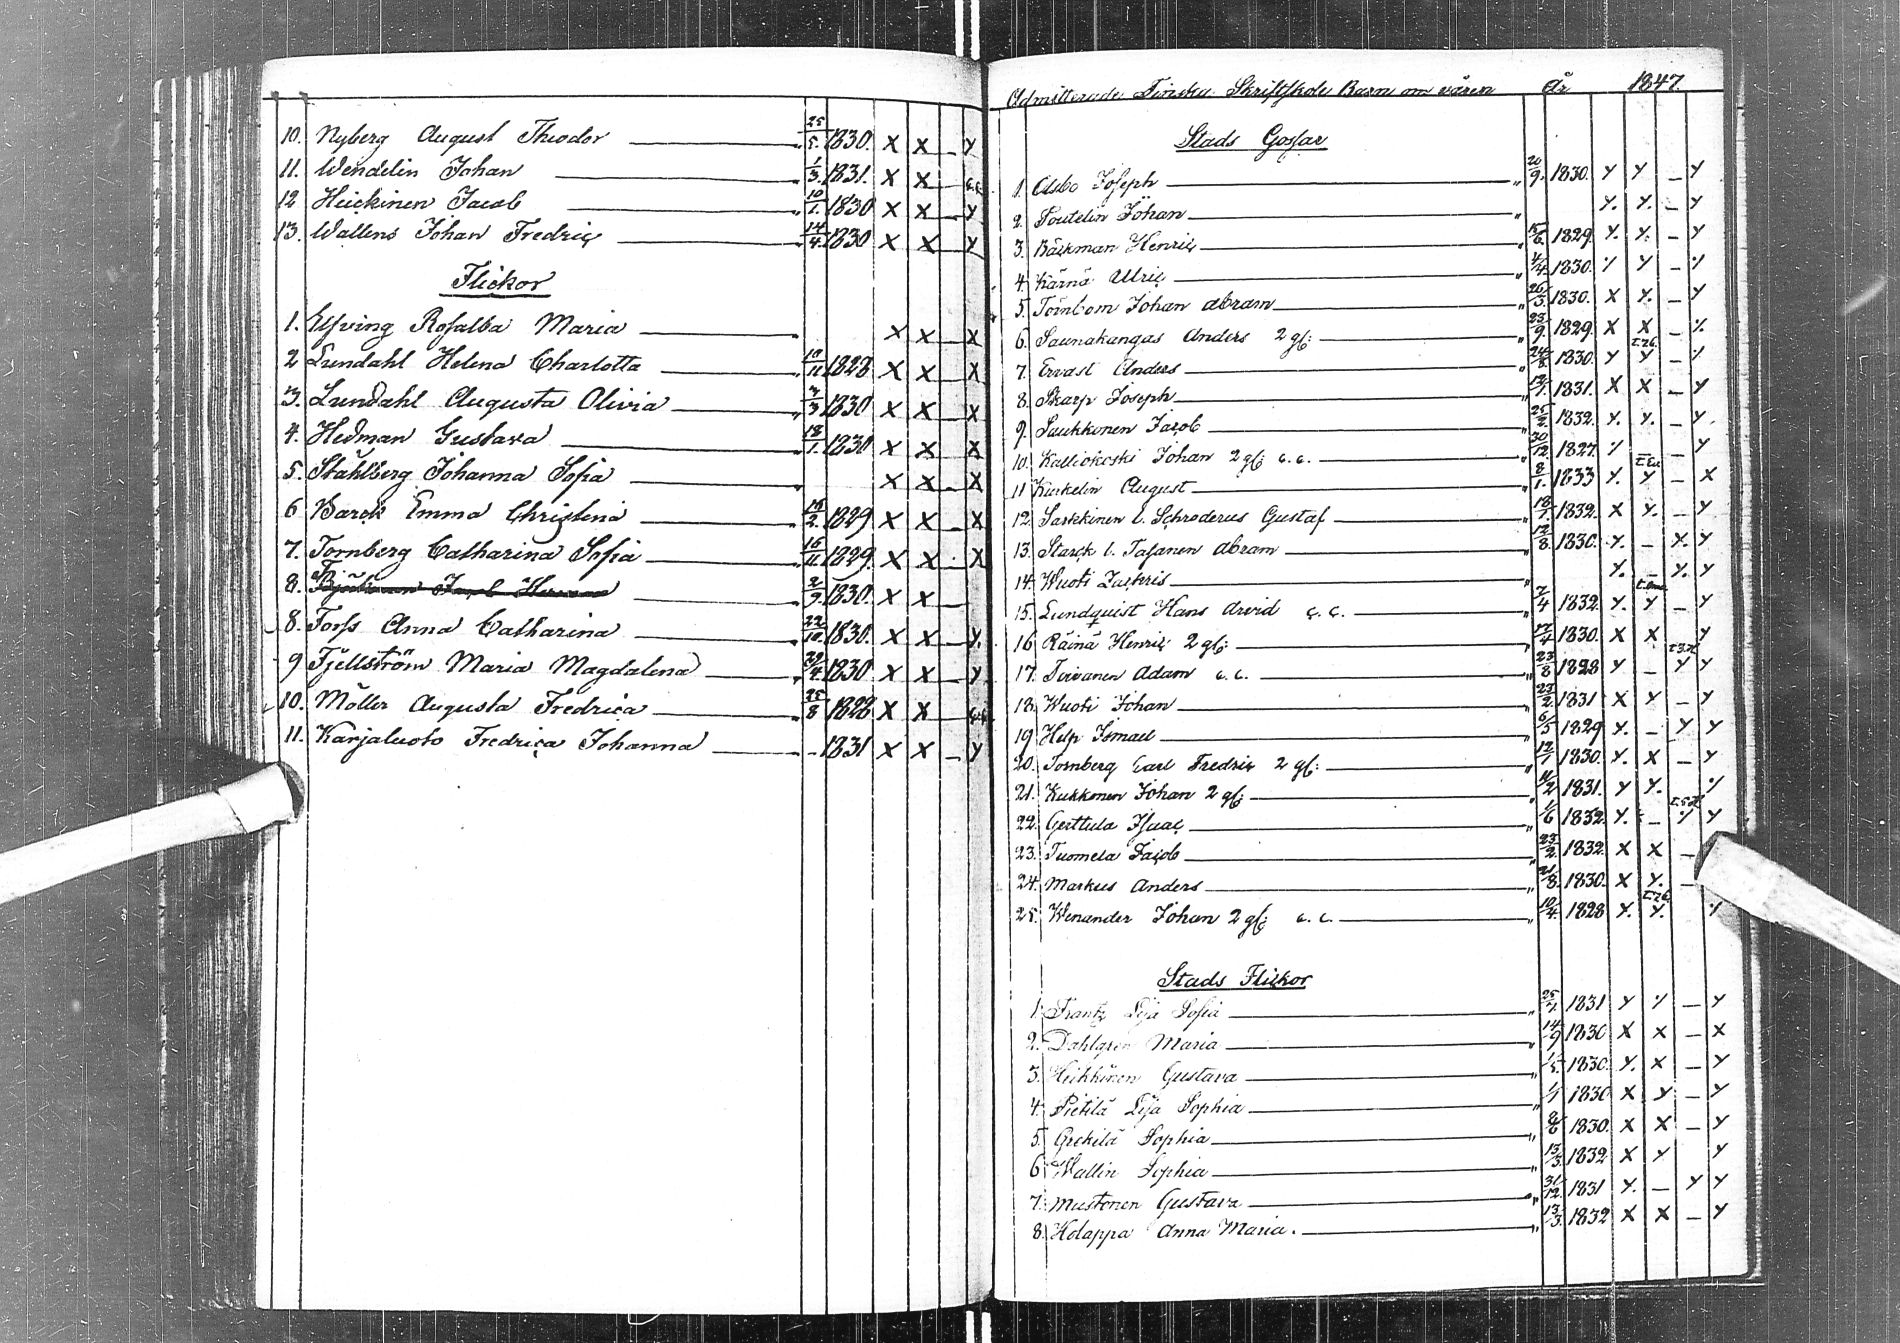 10. Nyberg August Theodor 25/5. 1830. X X – Y
11. Wendelin Johan 1/3. 1831. X X c.c.
12 Heickinen Jacob 10/1. 1830 X X – Y
13. Wallens Johan Fredric 14/4. 1830 X X – Y
Flickor
1. Elfving Rosalba Maria X X – X
2 Lundahl Helena Charlotta 1828 X X – X
3. Lundahl Augusta Olivia 1830 X X – X
4. Hedman Gustava 18/1. 1830 X X – X
5. Ståhlberg Johanna Sofia X X – X
6 Barck Emma Christina 1829 X X – X
7. Tornberg Catharina Sofia 1829. X X X
8. 2/9. 1830. X X –
8. Forss Anna Catharina 22/10. 1830. X X – Y.
9 Fjellström Maria Magdalena 29/4. 1830 X X – Y
10. Möller Augusta Fredrica 25/8 1828 X X c.c.
11. Karjaluoto Fredrica Johanna – 1831 X X – Y
Admitterade Finska Skriftskole Barn om våren År 1847.
Stads Gossar
1. Asbo Joseph 20/9. 1830. Y Y – Y
2. Soutelin Johan Y. Y. – Y
3. Bäckman Henric 15/6. 1829. Y. Y. – Y
4. Kärnä Ulric 4/4. 1830. Y Y – Y
5. Törnbom Johan Abram 26/3. 1830. X Y. – Y
6. Saunakangas Anders 2 gb: 23/9. 1829. X X – Y.
7. Ervast Anders 24/8. 1830. Y Y – Y
8. Skarp Joseph 1831. X X – Y
9. Saukkonen Jacob 25/2. 1832. Y. Y. – Y.
10. Kalliokoski Johan 2 gb: c.c. 30/12. 1827. Y – Y
11 Kurkelin August 8/1. 1833 Y. Y – X
12. Sarkkinen l. Schroderus Gustaf 18/7. 1832. X Y. – Y
13. Starck l. Tasanen Abram 12/8. 1830. Y. – X. Y
14. Wuoti Zachris Y. – Y. Y
15. Lundquist Hans Arvid c.c. 2/4 1832. Y. Y – Y
16 Räinä Henric 2 gb: 17/4 1830. X X Y
17. Tervanen Adam c.c. 23/8 1828 Y – Y Y
18. Wuoti Johan 23/2 1831 X Y – Y
19 Help Ismael 6/5 1829 Y. – Y Y
20. Tornberg Carl Fredric 2 gb: 12/1 1830. Y. X – Y
21. Kukkonen Johan 2 gb: 11/2 1831. Y Y. Y
22. Gerttula Isaac 1/6 1832. Y. – Y Y
23. Tuomela Jacob 23/2. 1832. X X –
24. Markus Anders 21/8. 1830. X Y. –
25. Wenander Johan 2 gb: c.c. 10/4. 1828 Y. Y. Y
Stads Flickor
1. Frantz Lisa Sofia 1831 Y Y – Y
2. Dahlgren Maria 14/9 1830 X X – X
3. Heikkinen Gustava 1/5. 1830. Y. X – Y
4. Pietilä Lisa Sophia 1/1 1830 X Y – Y
5. Grekilä Sophia 1830. X X – Y
6 Wallin Sophia 13/3. 1832 X Y Y
7. Mustonen Gustava 31/12. 1831 Y. – Y Y
8. Holappa Anna Maria. 13/3. 1832 X X – Y